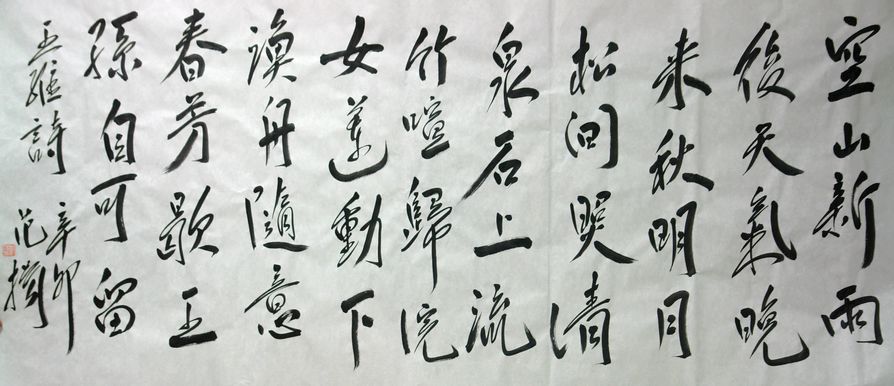 空山新雨
後天氣晚
来秋明月
松间照清
泉石上流
竹喧歸浣
女蓮動下
漁舟隨意
春芳歇王
孫自可留
王維詩
辛卯
范